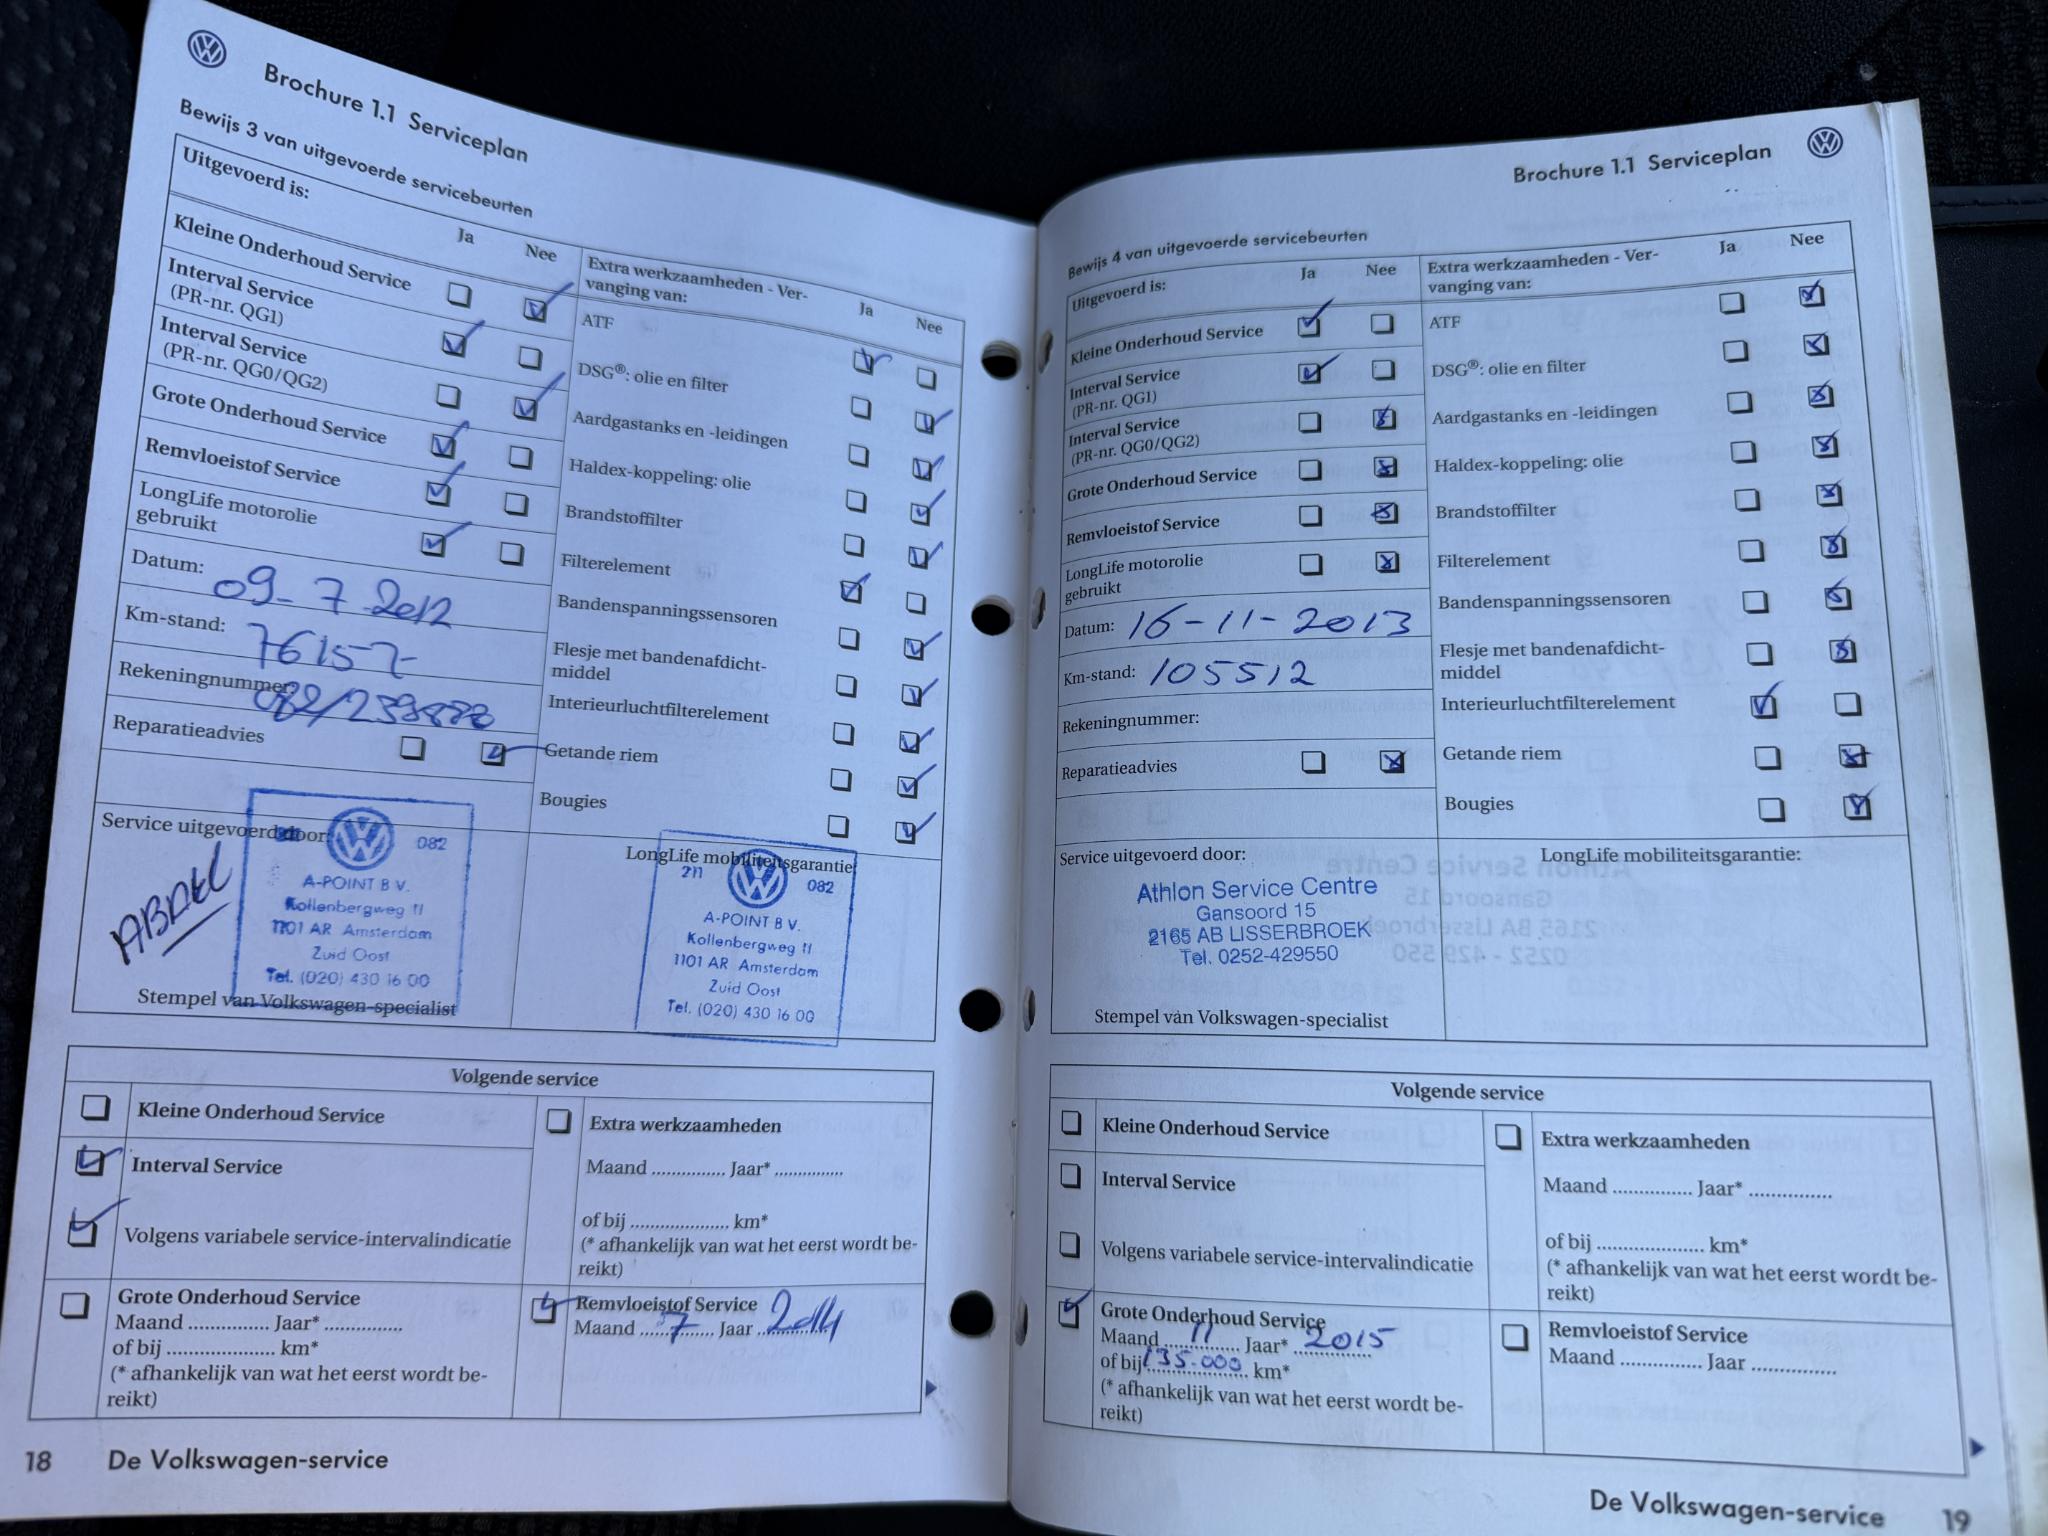 Brochure 1.1 Serviceplan
Bewijs 3 van uitgevoerde servicebeurten
Uitgevoerd is:
Ja Nee
Kleine Onderhoud Service
Interval Service
(PR-nr. QG1)
Interval Service
(PR-nr. QG0/QG2)
Grote Onderhoud Service
Remvloeistof Service
LongLife motorolie
gebruikt
Datum: 09-7-2012
Km-stand: 76157
Rekeningnummer:
Reparatieadvies
Extra werkzaamheden - Ver-
vanging van:
Ja Nee
ATF
DSG®: olie en filter
Aardgastanks en -leidingen
Haldex-koppeling: olie
Brandstoffilter
Filterelement
Bandenspanningssensoren
Flesje met bandenafdicht-
middel
Interieurluchtfilterelement
Getande riem
Bougies
Service uitgevoerd door:
ABDEL
082
A-POINT B V.
Kollenbergweg 11
1101 AR Amsterdam
Zuid Oost
Tel. (020) 430 16 00
Stempel van Volkswagen-specialist
LongLife mobiliteitsgarantie
211 082
A-POINT B V.
Kollenbergweg 11
1101 AR Amsterdam
Zuid Oost
Tel. (020) 430 16 00
Volgende service
Kleine Onderhoud Service
Interval Service
Volgens variabele service-intervalindicatie
Grote Onderhoud Service
Maand ............... Jaar* ...............
of bij .................... km*
(* afhankelijk van wat het eerst wordt be-
reikt)
Extra werkzaamheden
Maand ............... Jaar* ...............
of bij .................... km*
(* afhankelijk van wat het eerst wordt be-
reikt)
Remvloeistof Service
Maand 7 Jaar 2014
18 De Volkswagen-service
Brochure 1.1 Serviceplan
Bewijs 4 van uitgevoerde servicebeurten
Uitgevoerd is:
Ja Nee
Kleine Onderhoud Service
Interval Service
(PR-nr. QG1)
Interval Service
(PR-nr. QG0/QG2)
Grote Onderhoud Service
Remvloeistof Service
LongLife motorolie
gebruikt
Datum: 16-11-2013
Km-stand: 105512
Rekeningnummer:
Reparatieadvies
Extra werkzaamheden - Ver-
vanging van:
Ja Nee
ATF
DSG®: olie en filter
Aardgastanks en -leidingen
Haldex-koppeling: olie
Brandstoffilter
Filterelement
Bandenspanningssensoren
Flesje met bandenafdicht-
middel
Interieurluchtfilterelement
Getande riem
Bougies
Service uitgevoerd door:
Athlon Service Centre
Gansoord 15
2165 AB LISSERBROEK
Tel. 0252-429550
Stempel van Volkswagen-specialist
LongLife mobiliteitsgarantie:
Volgende service
Kleine Onderhoud Service
Interval Service
Volgens variabele service-intervalindicatie
Grote Onderhoud Service
Maand 11 Jaar* 2015
of bij 135.000 km*
(* afhankelijk van wat het eerst wordt be-
reikt)
Extra werkzaamheden
Maand ............... Jaar* ...............
of bij .................... km*
(* afhankelijk van wat het eerst wordt be-
reikt)
Remvloeistof Service
Maand ............... Jaar ...............
De Volkswagen-service 19